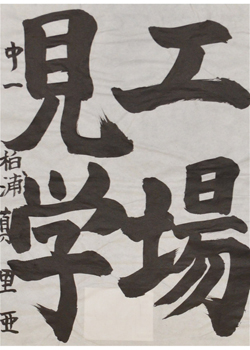 工場
見学
中一 柏浦真里亜